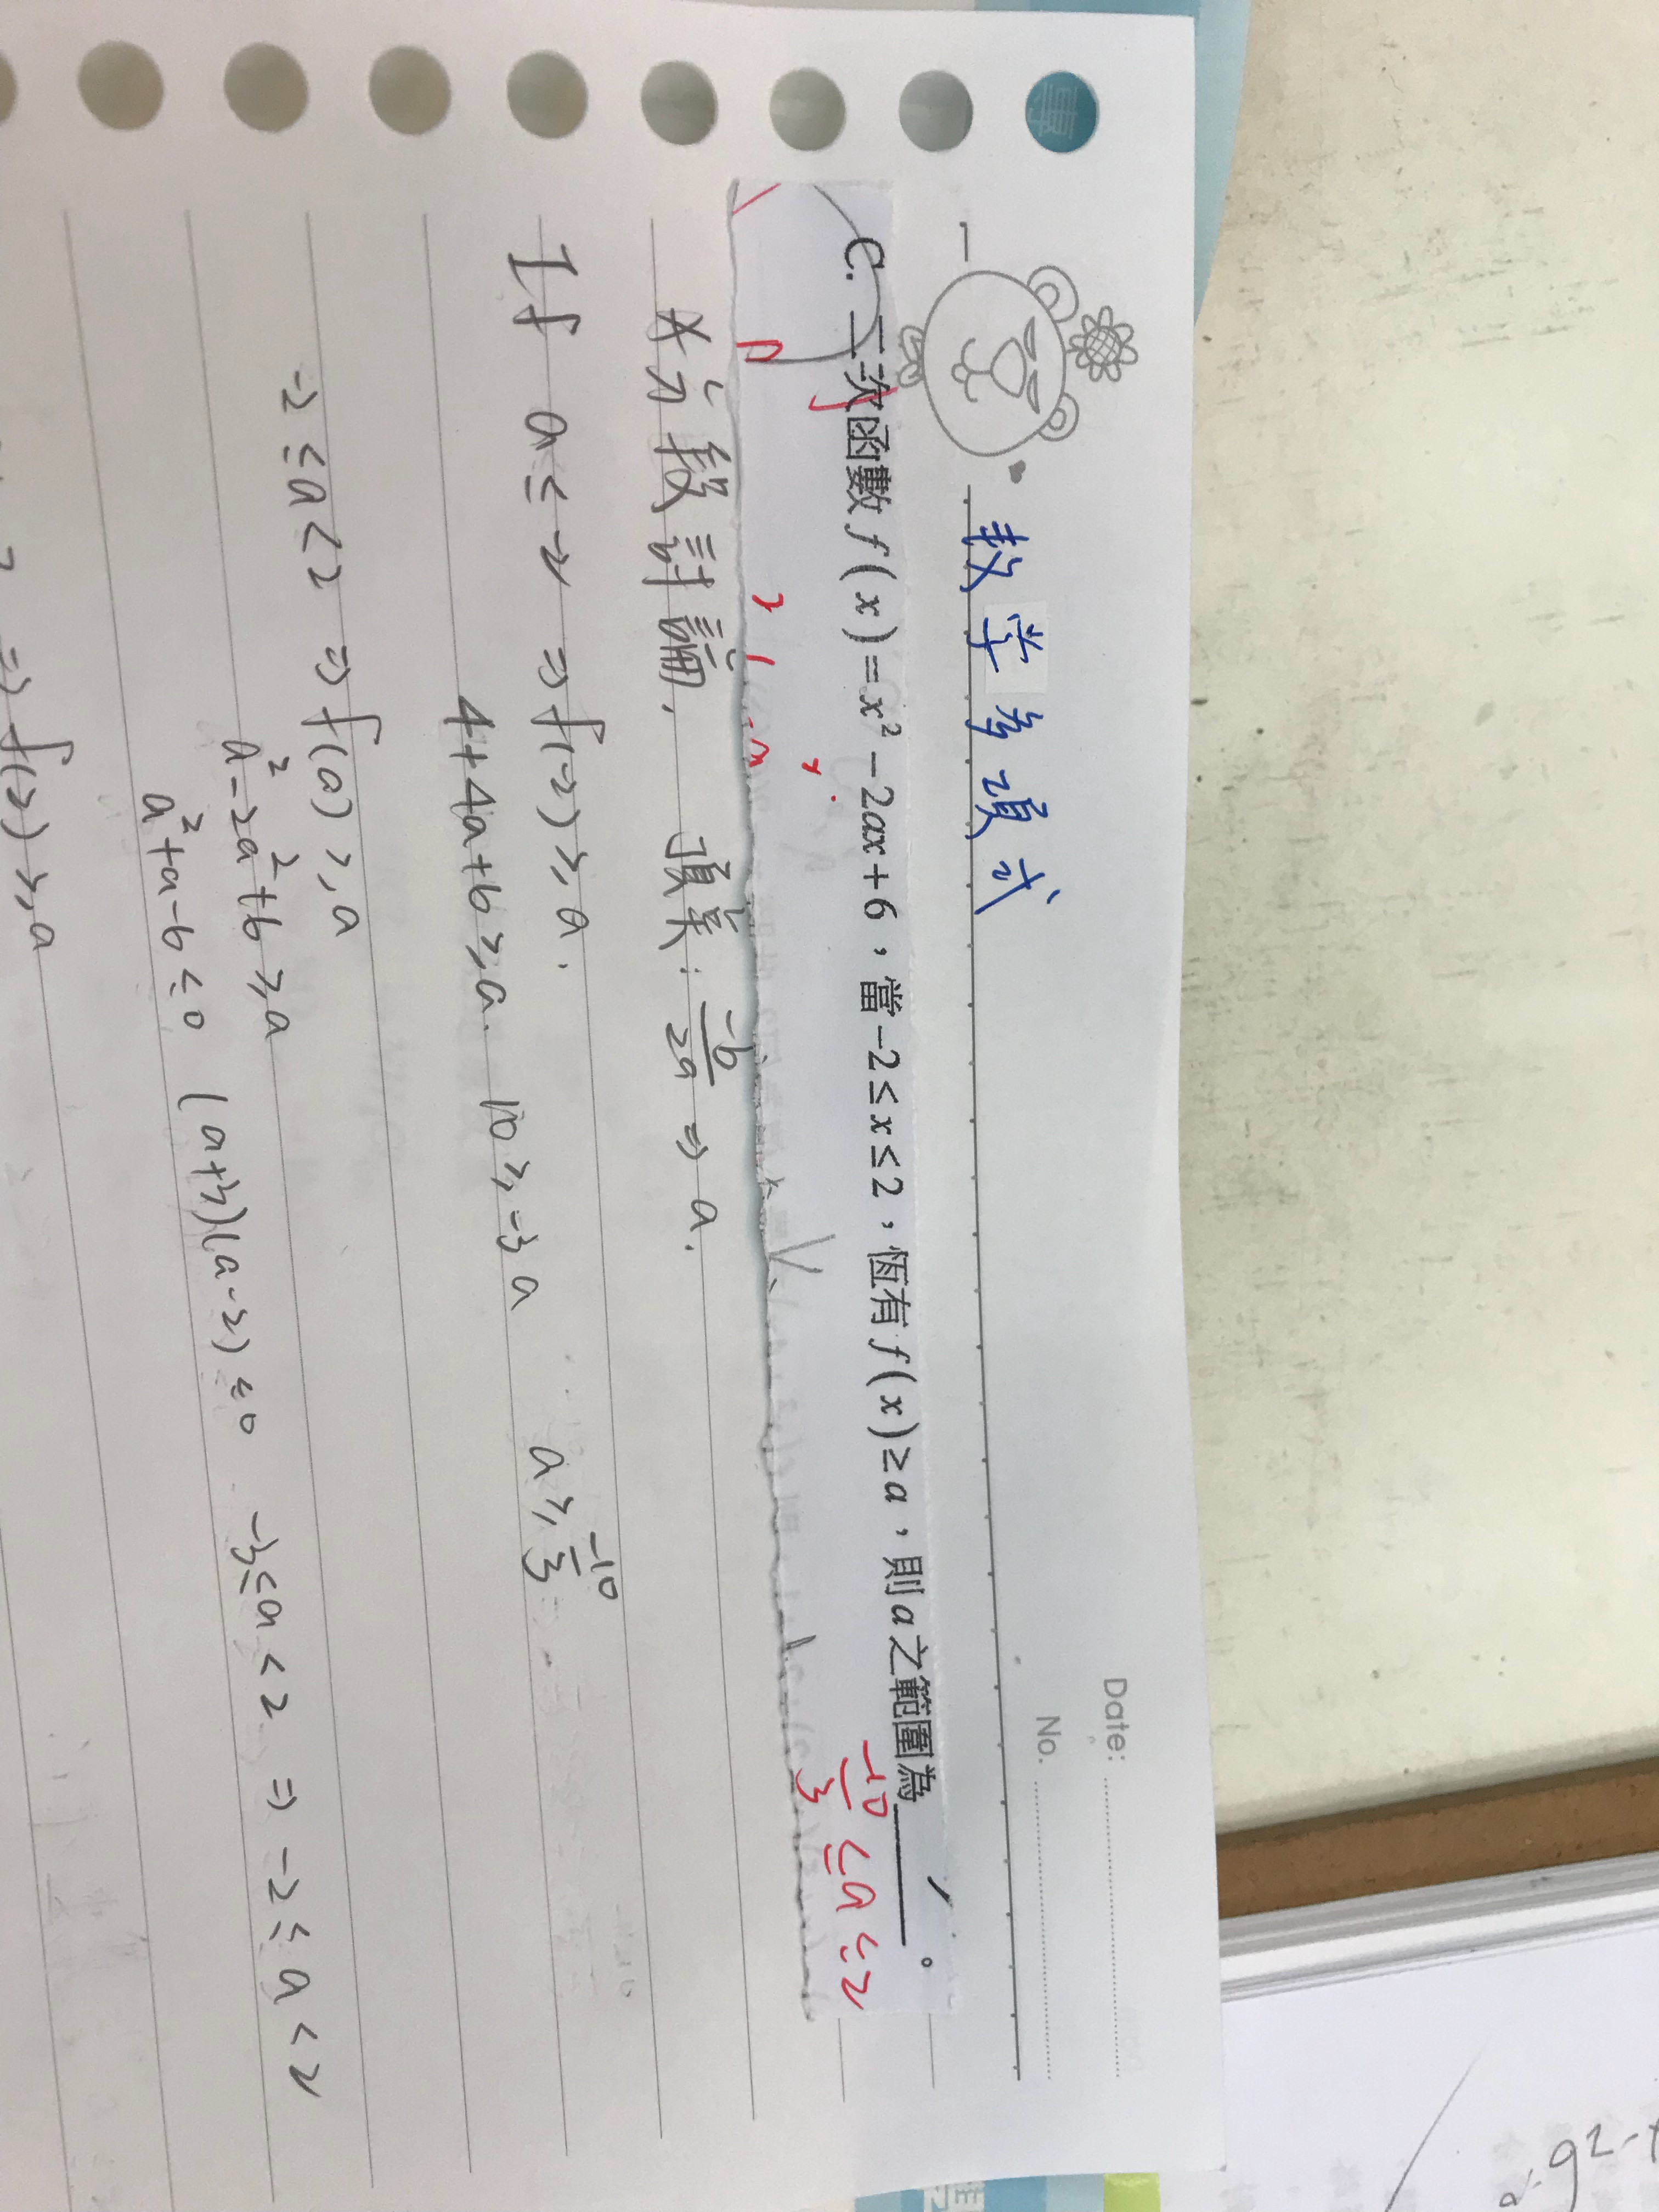 Date:
No.
數学多項式
C. 二次函數 f(x)=x²-2ax+6,當-2≤x≤2,恆有 f(x)≥a,則a之範圍為______。
-10/3 ≤a≤2
分段討論, 頂點: -b/2a ⇒ a.
If a≤-2 ⇒ f(-2)≥a.
4+4a+6≥a. 10≥-3a a≥-10/3
-2≤a<2 ⇒ f(a)≥a
a²-2a²+6≥a
a²+a-6≤0 (a+3)(a-2)≤0 -3≤a<2 ⇒ -2≤a<2
⇒ f(2)≥a